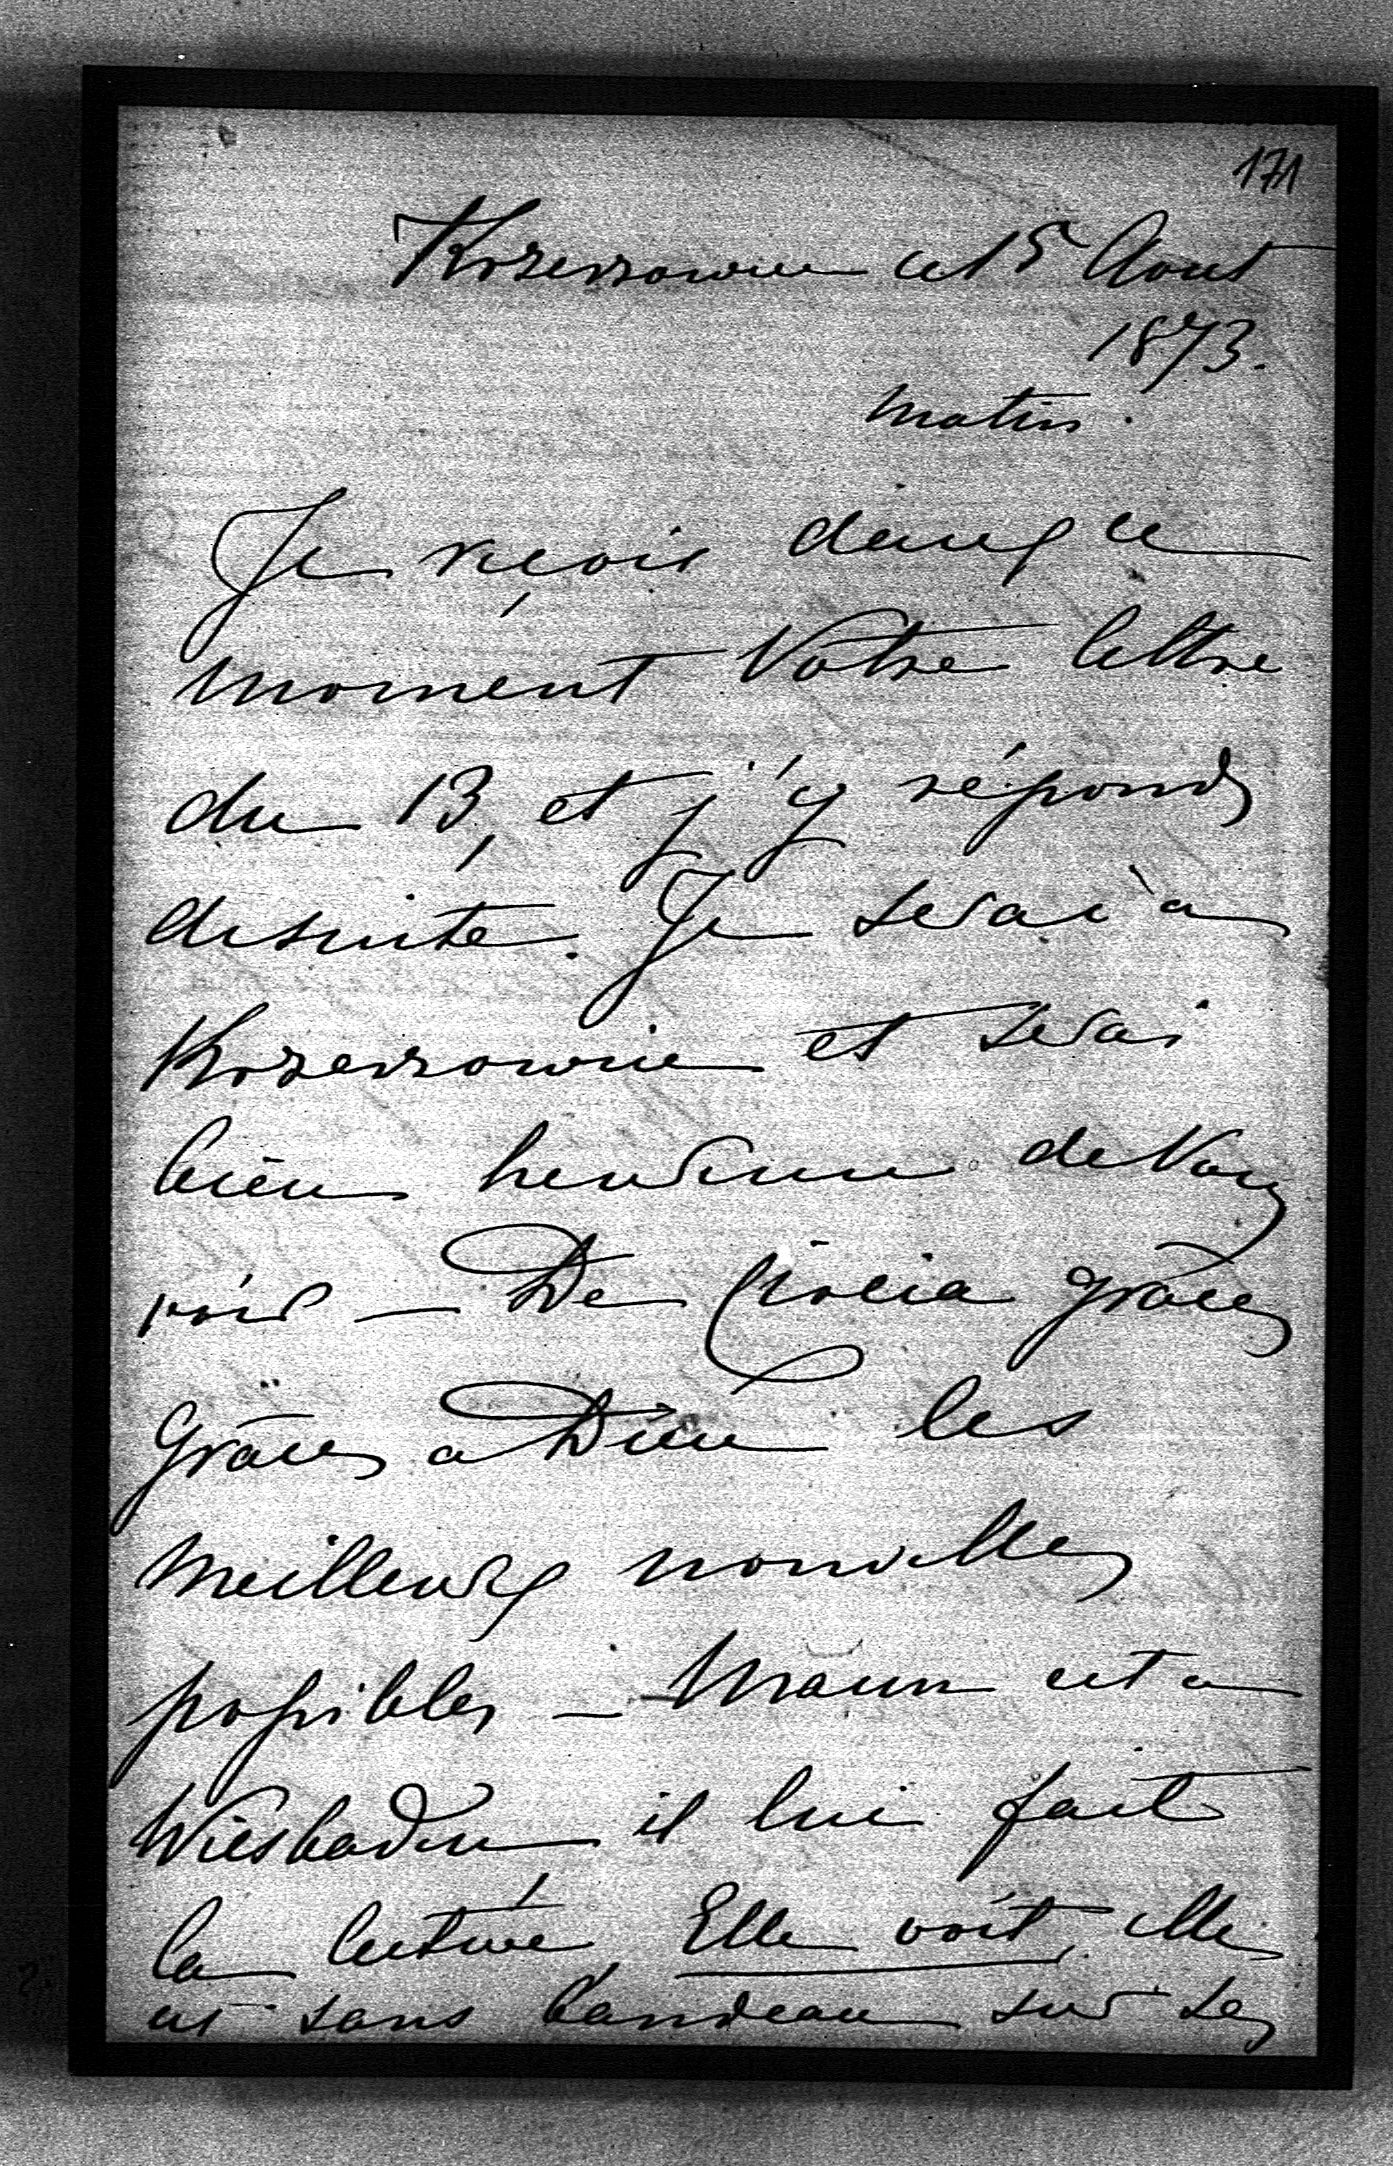 171
Krzeszowice ce 15 Aout
1873.
matin.
Je reçois dans ce
moment Votre lettre
du 13, et j'y réponds
desuite. Je serai à
Krzeszowice et serai
bien heureuse de Vous
voir — De Ciocia grâces
grâces a Dieu les
meilleures nouvelles
possibles — Maur est a
Wiesbaden, il lui fait
la lecture, Elle voit, elle
est sans bandeau sur les